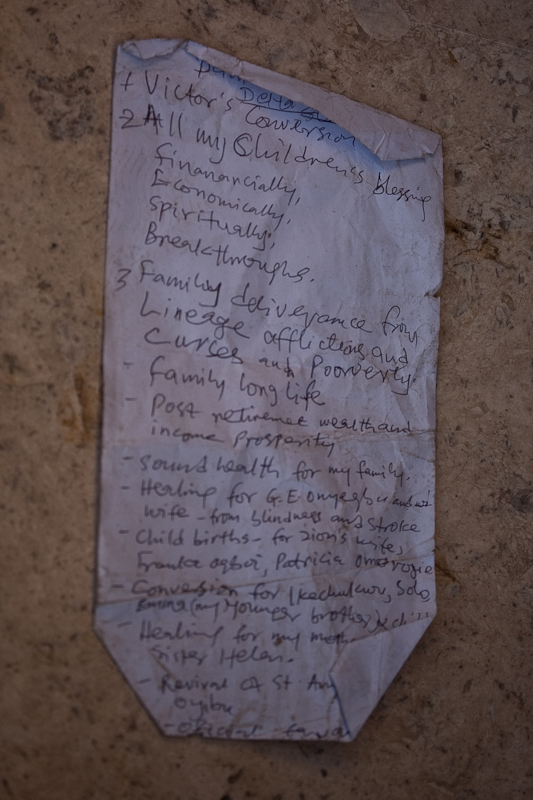 Delta
1 Victor's Conversion
2 All my Children's blessing
Finanancially,
Economically,
Spiritually,
Breakthroughs.
3 Family deliverance from
Lineage afflictions and
Curses and Pooverty.
- Family long life
- Post retiremet wealth and
income Prosperity
- Sound health for my family.
- Healing for G.E Onyegbu and
wife - from blindness and stroke
- Child births - for Zion's wife,
Franka Patricia
- Conversion for Ikechukwu, Solo
(my Younger brother)
- Healing for my
Sister Helen.
- Revival at St